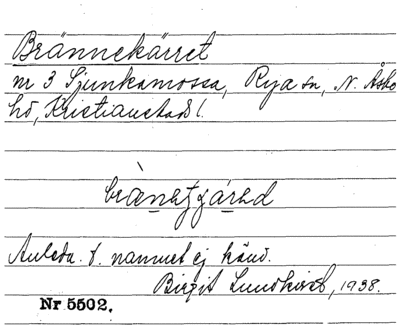 Brännekärret
nr 3 Sjunkamossa, Rya sn, N. Åsbo
hd, Kristianstads l.
Anledn. t. namnet ej känd.
Birgit Lundkvist, 1938.
Nr 5502.